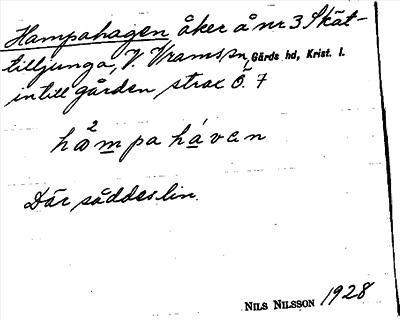 Hampahagen åker å nr 3 Skät-
tilljunga, V. Vrams sn, Gärds hd, Krist. l.
intill gården strax Ö. 7
hampa háven
Där såddes lin.
NILS NILSSON 1928